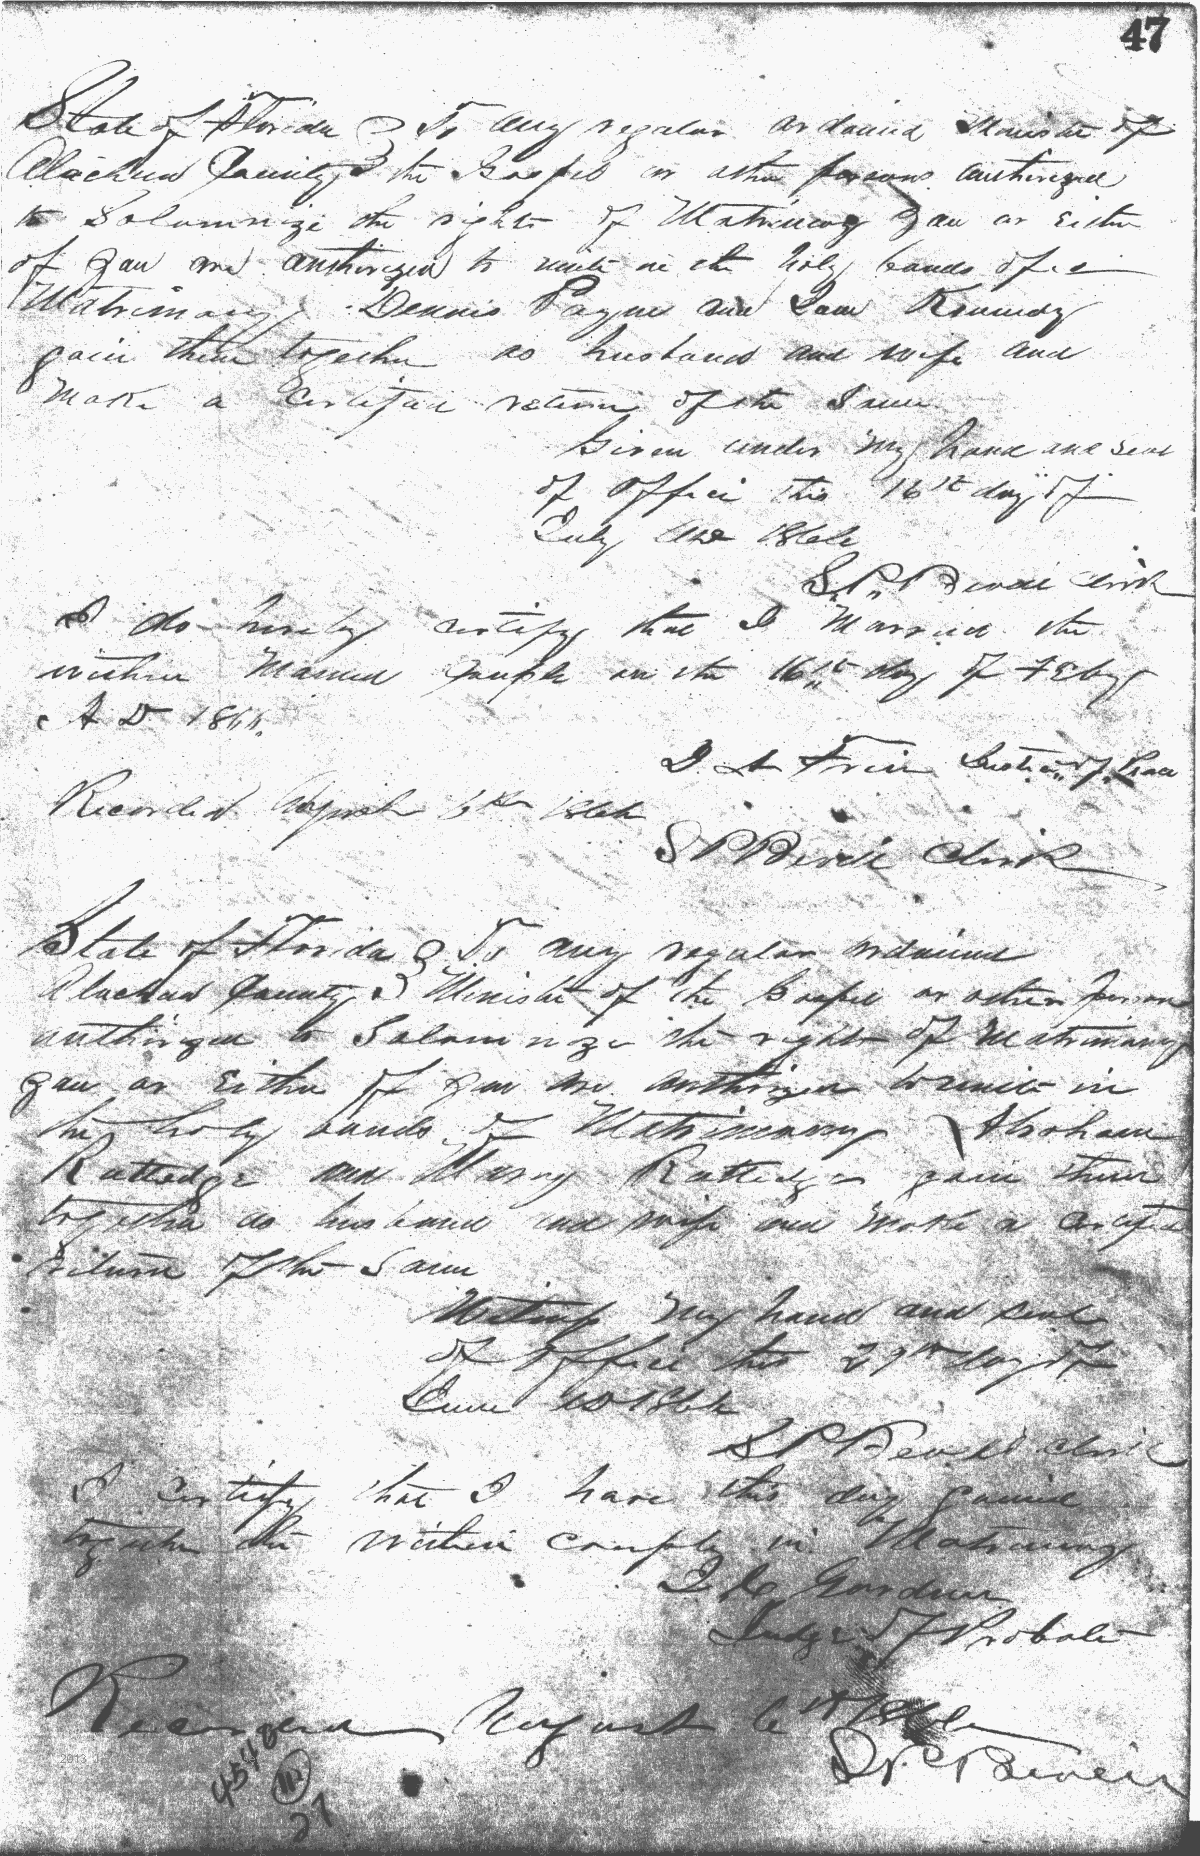 47
State of Florida } To any regular ordained Minister of
Alachua County } the Gospel or other persons authorized
to Solumnize the rights of Matrimony you or either
of you are authorized to unite in the holy bands of
Matrimony Dennis Payne and Kennedy
join them together as husband and wife and
make a certified return of the Same
Given under my hand and seal
of office this 16th day of
July AD 1866
S. P. Clerk
I do hereby certify that I Married the
within Named couple on the 16th day of Feby
A D 1866
Justice of Peace
Recorded August 6th 1866
S P Clerk
State of Florida } To any regular ordained
Alachua County } Minister of the Gospel or other person
authorized to Solumnize the rights of Matrimony
you or either of you are authorized to unite in
the holy bands of Matrimony Abraham
Rutledge and Marry Rutledge join them
together as husband and wife and make a certified
return of the Same
Witness my hand and seal
of office this 29th day of
June AD 1866
S P Clerk
I certify that I have this day joined
together the within couple in Matrimony
Gardner
Judge of Probate
Recorded August 6th 1866
S P
2013
27